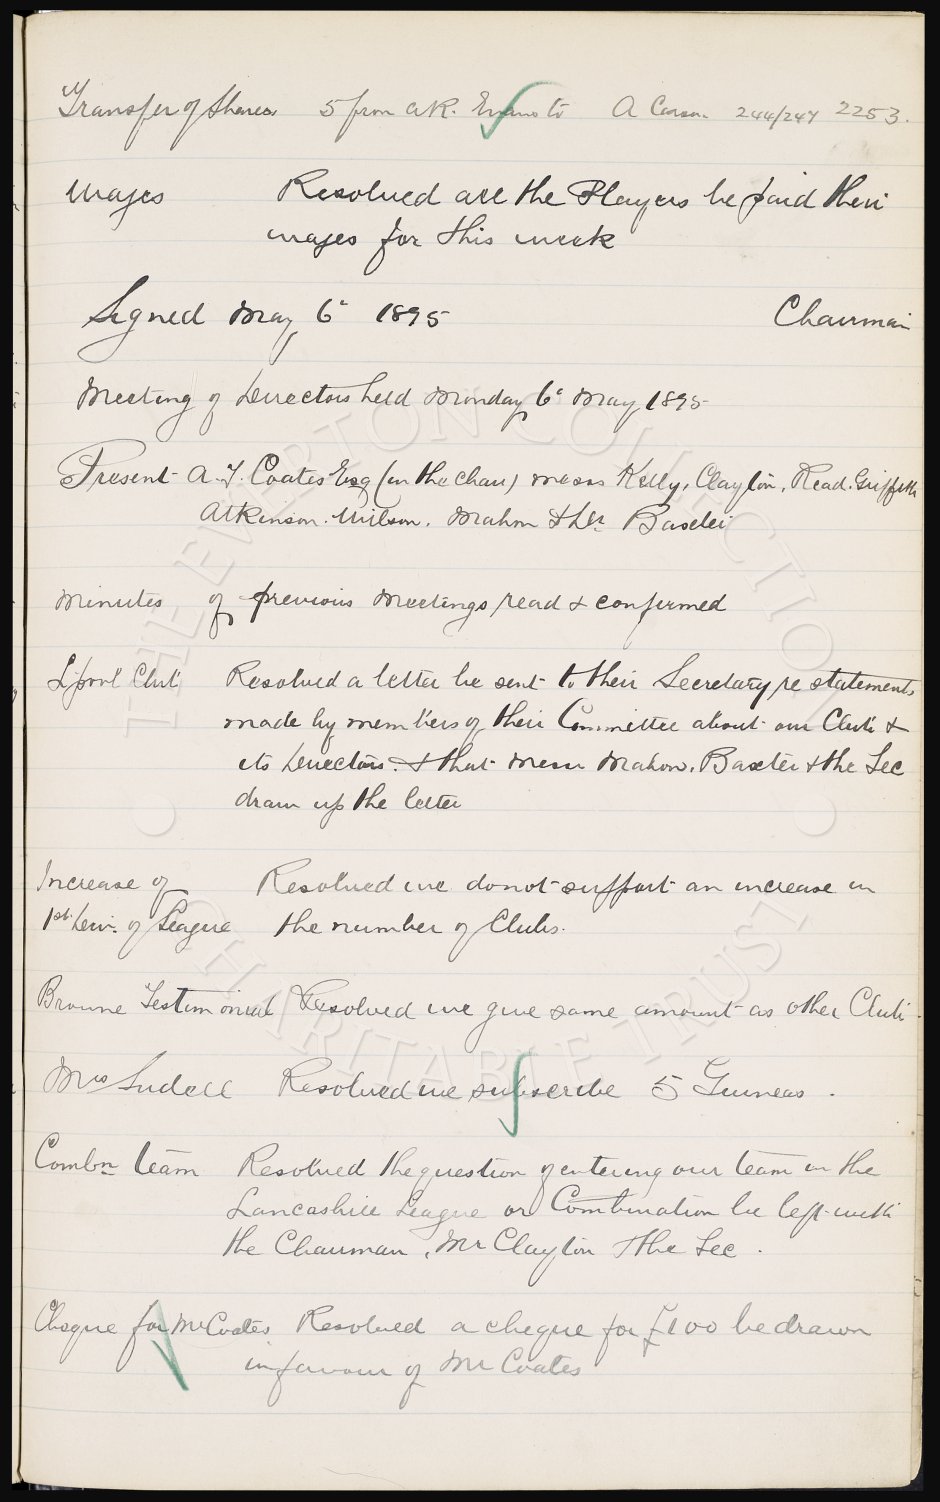 Transfer of Shares 5 from A R. Evans to A Carson. 244/247 2253.
Wages Resolved all the Players be paid their
wages for this week
Signed May 6th 1895 Chairman
Meeting of Directors held Monday 6th May 1895
Present A. T. Coates Esq (in the chair) Messrs Kelly, Clayton, Read. Griffith
Atkinson. Wilson. Mahon & Dr Baxter
Minutes of previous Meetings read & confirmed
L'pool Club Resolved a letter be sent to their Secretary re statements
made by members of their Committee about our Club &
its Directors. & that Messrs Mahon. Baxter & the Sec
draw up the letter
Increase of Resolved we do not support an increase in
1st Divn. of League the number of Clubs.
Browne Testimonial Resolved we give same amount as other Clubs.
Mrs Sudell Resolved we subscribe 5 Guineas.
Combn team Resolved the question of entering our team in the
Lancashire League or Combination be left with
the Chairman, Mr Clayton & the Sec.
Cheque for Mr Coates. Resolved a cheque for £100 be drawn
in favour of Mr Coates
THE EVERTON COLLECTION
CHARITABLE TRUST